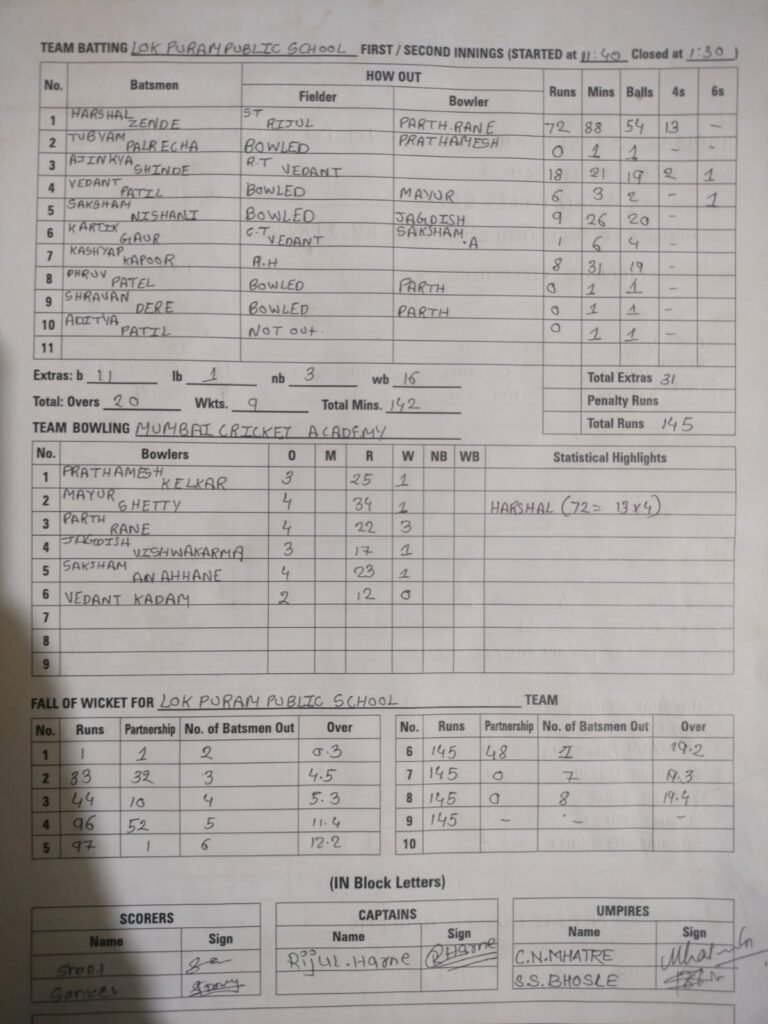 TEAM BATTING LOK PURAM PUBLIC SCHOOL FIRST / SECOND INNINGS (STARTED at 11:40 Closed at 1:30 )
No. Batsmen HOW OUT Runs Mins Balls 4s 6s
Fielder Bowler
1 HARSHAL ZENDE ST RIJUL PARTH.RANE 72 88 54 13 -
2 TUBYAM PALRECHA BOWLED PRATHAMESH 0 1 1 - -
3 AJINKYA SHINDE R.T VEDANT 18 21 19 2 1
4 VEDANT PATIL BOWLED MAYUR 6 3 2 - 1
5 SAKSHAM NISHANI BOWLED JAGDISH 9 26 20 -
6 KARTIK GAUR C.T VEDANT SAKSHAM .A 1 6 4 -
7 KASHYAP KAPOOR R.H 8 31 19 -
8 DHRUV PATEL BOWLED PARTH 0 1 1 -
9 SHRAVAN DERE BOWLED PARTH 0 1 1 -
10 ADITYA PATIL NOT OUT. 0 1 1 -
11
Extras: b 11 lb 1 nb 3 wb 16 Total Extras 31
Total: Overs 20 Wkts. 9 Total Mins. 142 Penalty Runs
Total Runs 145
TEAM BOWLING MUMBAI CRICKET ACADEMY
No. Bowlers O M R W NB WB Statistical Highlights
1 PRATHAMESH KELKAR 3 25 1
2 MAYUR SHETTY 4 34 1 HARSHAL (72 = 13x4)
3 PARTH RANE 4 22 3
4 JAGDISH VISHWAKARMA 3 17 1
5 SAKSHAM ANAHHANE 4 23 1
6 VEDANT KADAM 2 12 0
7
8
9
FALL OF WICKET FOR LOK PURAM PUBLIC SCHOOL TEAM
No. Runs Partnership No. of Batsmen Out Over No. Runs Partnership No. of Batsmen Out Over
1 1 1 2 0.3 6 145 48 1 19.2
2 33 32 3 4.5 7 145 0 7 19.3
3 44 10 4 5.3 8 145 0 8 19.4
4 96 52 5 11.4 9 145 - - -
5 97 1 6 12.2 10
(IN Block Letters)
SCORERS CAPTAINS UMPIRES
Name Sign Name Sign Name Sign
Rijul.Harne RHarne C.N.MHATRE
S.S.BHOSLE